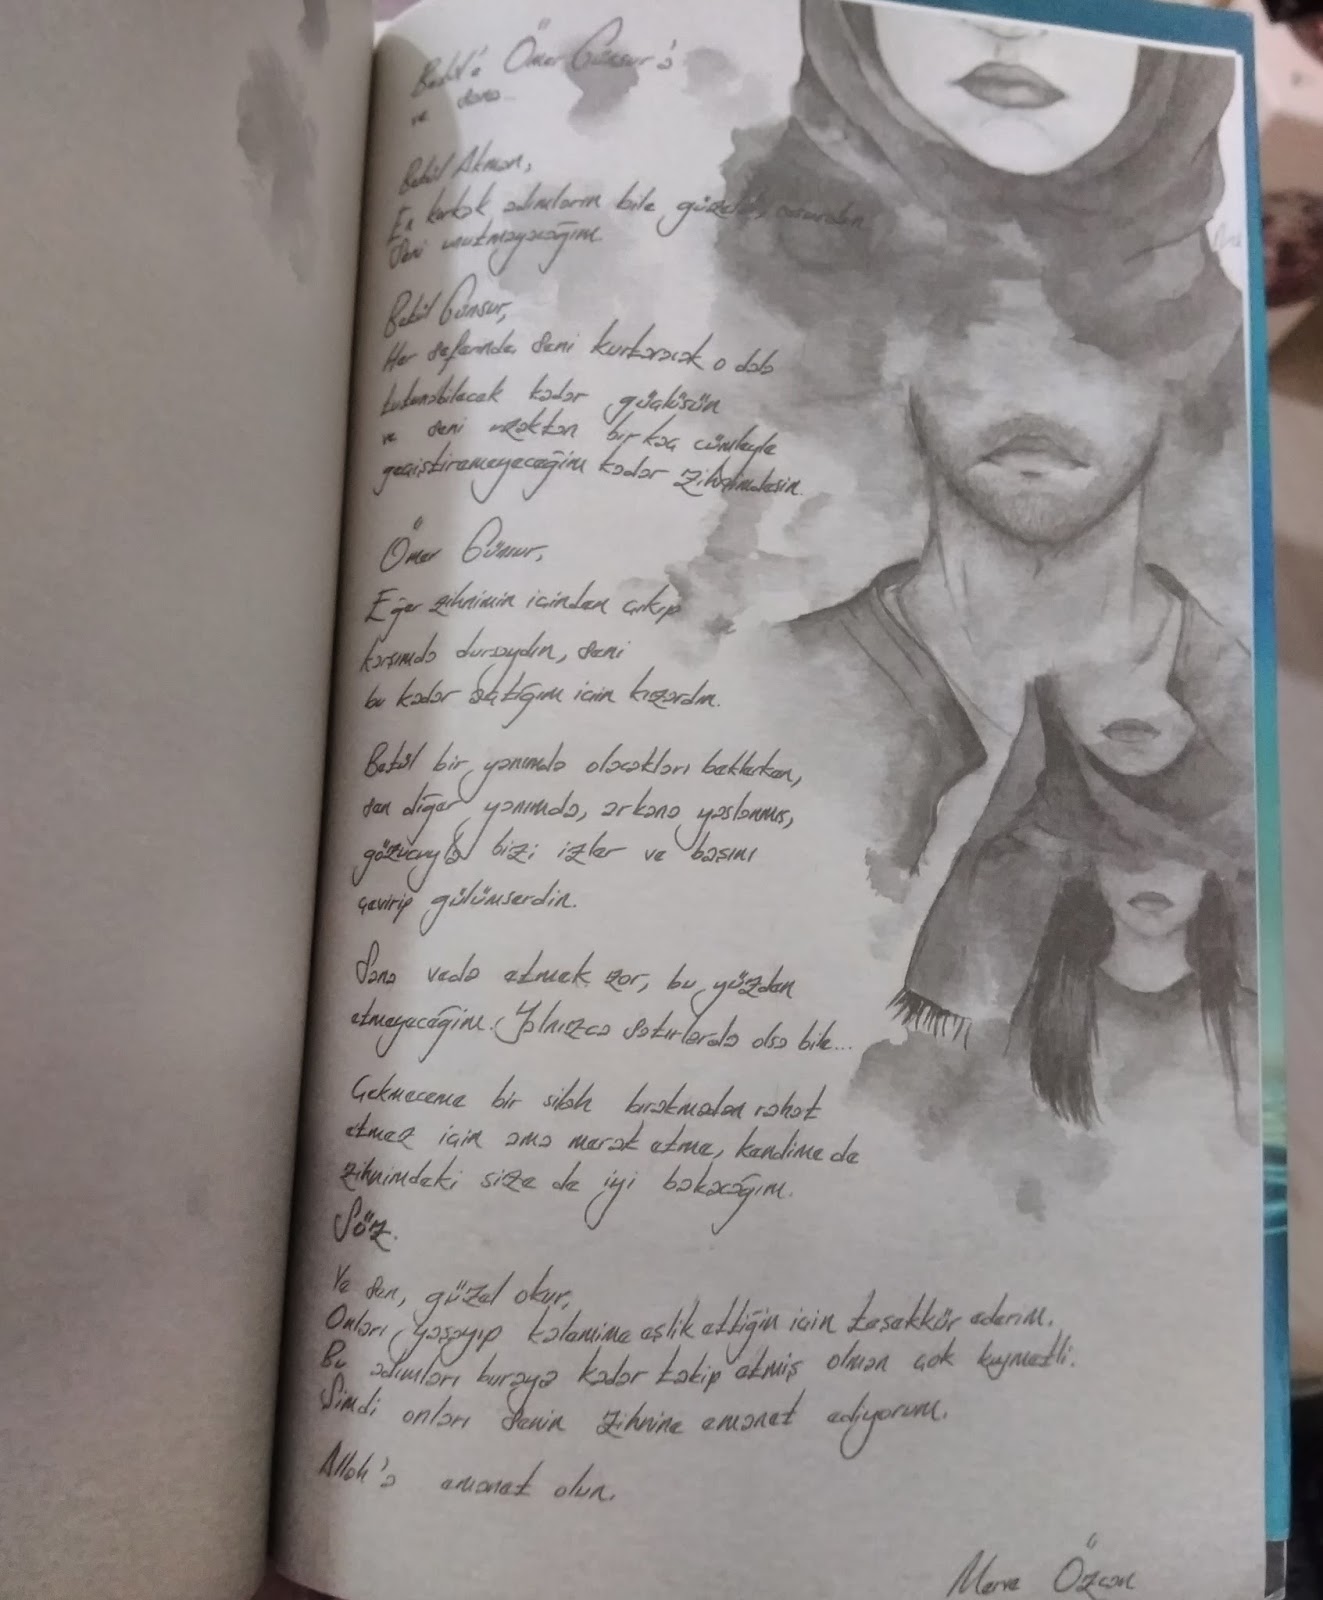 Betül'e Ömer Günsur'a
ve sana...
Betül Akman,
En korkak adımların bile güzeldi, cesurdan
Seni unutmayacağım.
Betül Günsur,
Her seferinde seni kurtaracak o dala
tutunabilecek kadar güçlüsün
ve seni uzaktan birkaç cümleyle
geçiştiremeyeceğim kadar zihnimdesin.
Ömer Günsur,
Eğer zihnimin içinden çıkıp
karşımda dursaydın, seni
bu kadar açtığım için kızardın.
Betül bir yanımda olacakları beklerken,
sen diğer yanımda, arkana yaslanmış,
gözucuyla bizi izler ve başını
çevirip gülümserdin.
Sana veda etmek zor, bu yüzden
etmeyeceğim. Yalnızca satırlarda olsa bile...
Çekmeceme bir silah bırakmadan rahat
etmez için ama merak etme, kendime de
zihnimdeki size de iyi bakacağım.
Söz.
Ve sen, güzel okur,
Onları yaşayıp kalamime eşlik ettiğin için teşekkür ederim.
Bu adımları buraya kadar takip etmiş olman çok kıymetli.
Şimdi onları senin zihnine emanet ediyorum.
Allah'a emanet olun.
Merve Özcan